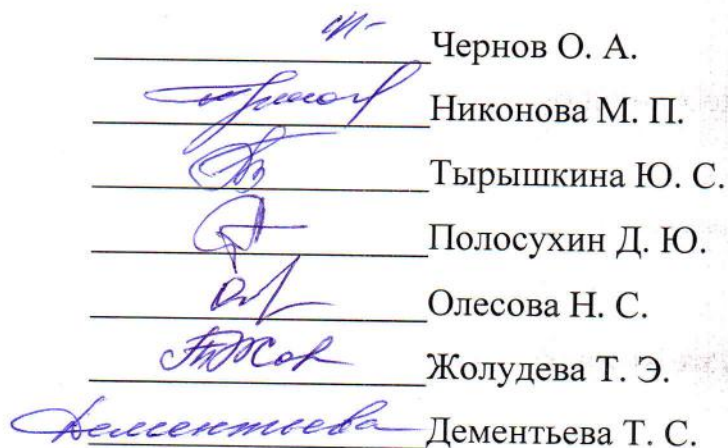 Чернов О. А.
Никонова М. П.
Тырышкина Ю. С.
Полосухин Д. Ю.
Олесова Н. С.
Жолудева Т. Э.
Дементьева Дементьева Т. С.